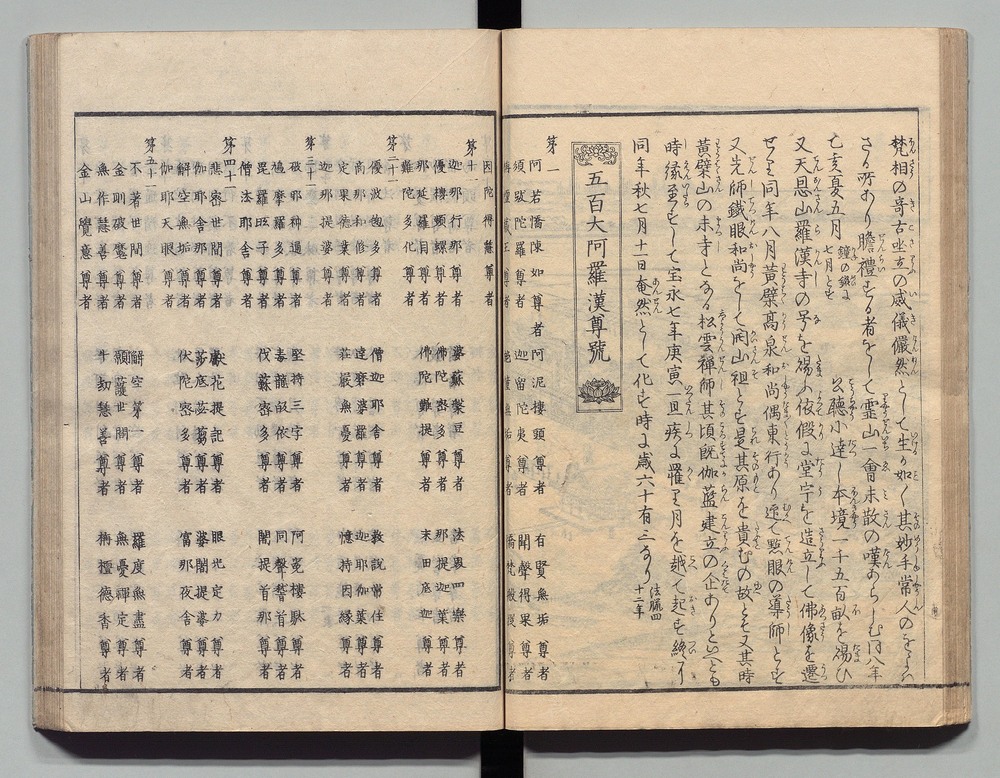 梵相の奇古坐立の威儀儼然として生るが如く其妙手常人のをよふ
さる所あり瞻禮する者をして霊山一會未散の嘆あらしむ同八年
乙亥夏五月
公聽小達し本境一千五百畝を賜ひ
又天恩山羅漢寺の号を賜ふ依假に堂宇を造立して佛像を遷
せり同年八月黄檗高泉和尚偶東行あり迎て點眼の導師とす
又先師鐵眼和尚をして開山祖とす是其原を貴むの故とそ又其時
黄檗山の末寺となる松雲禅師其頃既伽藍建立の企ありといへとも
時縁至すして宝永七年庚寅一旦疾に罹り月を越て起す終に
同年秋七月十一日奄然として化す時に歳六十有三なり
法臘四十二年
五百大阿羅漢尊號
第一
阿若憍陳如尊者
阿泥樓頭尊者
有賢無垢尊者
須跋陀羅尊者
迦留陀夷尊者
聞聲得果尊者
栴檀藏王尊者
因陀得慧尊者
第十一
迦那行那尊者
婆蘇槃豆尊者
法界四樂尊者
優樓頻螺尊者
佛陀密多尊者
那提迦葉尊者
那延羅目尊者
佛陀難提尊者
末田底迦尊者
難陀多化尊者
第二十一
優波毱多尊者
僧迦耶舍尊者
教說常住尊者
商那和修尊者
達磨波羅尊者
迦耶伽葉尊者
定果德業尊者
莊嚴無憂尊者
憶持因緣尊者
迦那提婆尊者
第三十一
破邪神通尊者
堅持三字尊者
阿㝹樓馱尊者
鳩摩羅多尊者
毒龍皈依尊者
同聲稽首尊者
毘羅胝子尊者
伐蘇密多尊者
闍提首那尊者
僧法耶舍尊者
第四十一
悲密世間尊者
献花提記尊者
眼光定力尊者
伽耶舍那尊者
莎底苾蒭尊者
婆闍提婆尊者
解空無垢尊者
伏陀密多尊者
富那夜舍尊者
伽耶天眼尊者
第五十一
不著世間尊者
解空第一尊者
羅度無盡尊者
金剛破魔尊者
願護世間尊者
無憂禪定尊者
無作慧善尊者
十劫慧善尊者
栴檀德香尊者
金山覺意尊者